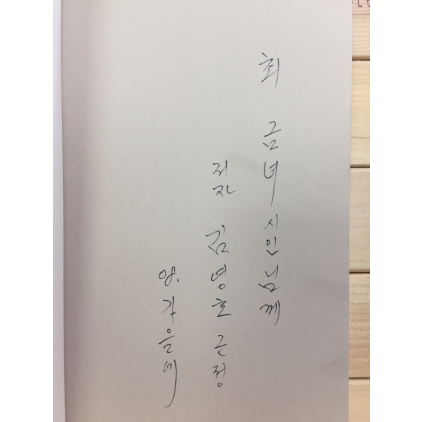 최 금녀 시인님께
저자 김영호 근정
가을에